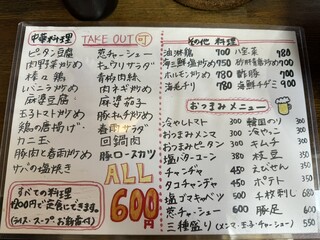 中華料理 TAKE OUT 可
ピータン豆腐
肉野菜炒め
棒々鶏
レバニラ炒め
麻婆豆腐
玉子トマト炒め
鶏の唐揚げ
カニ玉
豚肉と春雨炒め
サバの塩焼き
葱チャーシュー
キュウリサラダ
青椒肉絲
肉ネギ炒め
麻婆茄子
豚キムチ炒め
春雨サラダ
回鍋肉
豚ロースカツ
ALL
600円
すべての料理
+200円で定食にできます。
(ライス・スープ・お新香付)
その他 料理
油淋鶏 700
海三鮮塩炒め 750
ホルモン炒め 780
海老チリ 780
八宝菜 780
砂肝葱炒め 700
酢豚 700
海鮮チヂミ 780
おつまみメニュー
冷やしトマト 300
おつまみメンマ 300
おつまみピータン 300
塩バターコーン 380
チャンヂャ 450
タコチャンヂャ 450
塩ゴマキャベツ 300
葱チャーシュー 600
三種盛り (メンマ・玉子・チャーシュー) 550
韓国のり 300
冷やっこ 300
キムチ 300
枝豆 300
えびせん 350
ポテト 350
千枚刺し 680
豚足 600